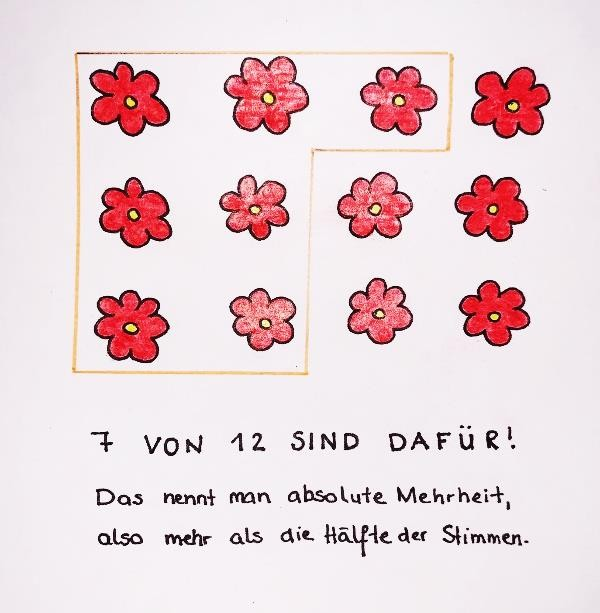 7 VON 12 SIND DAFÜR!
Das nennt man absolute Mehrheit,
also mehr als die Hälfte der Stimmen.